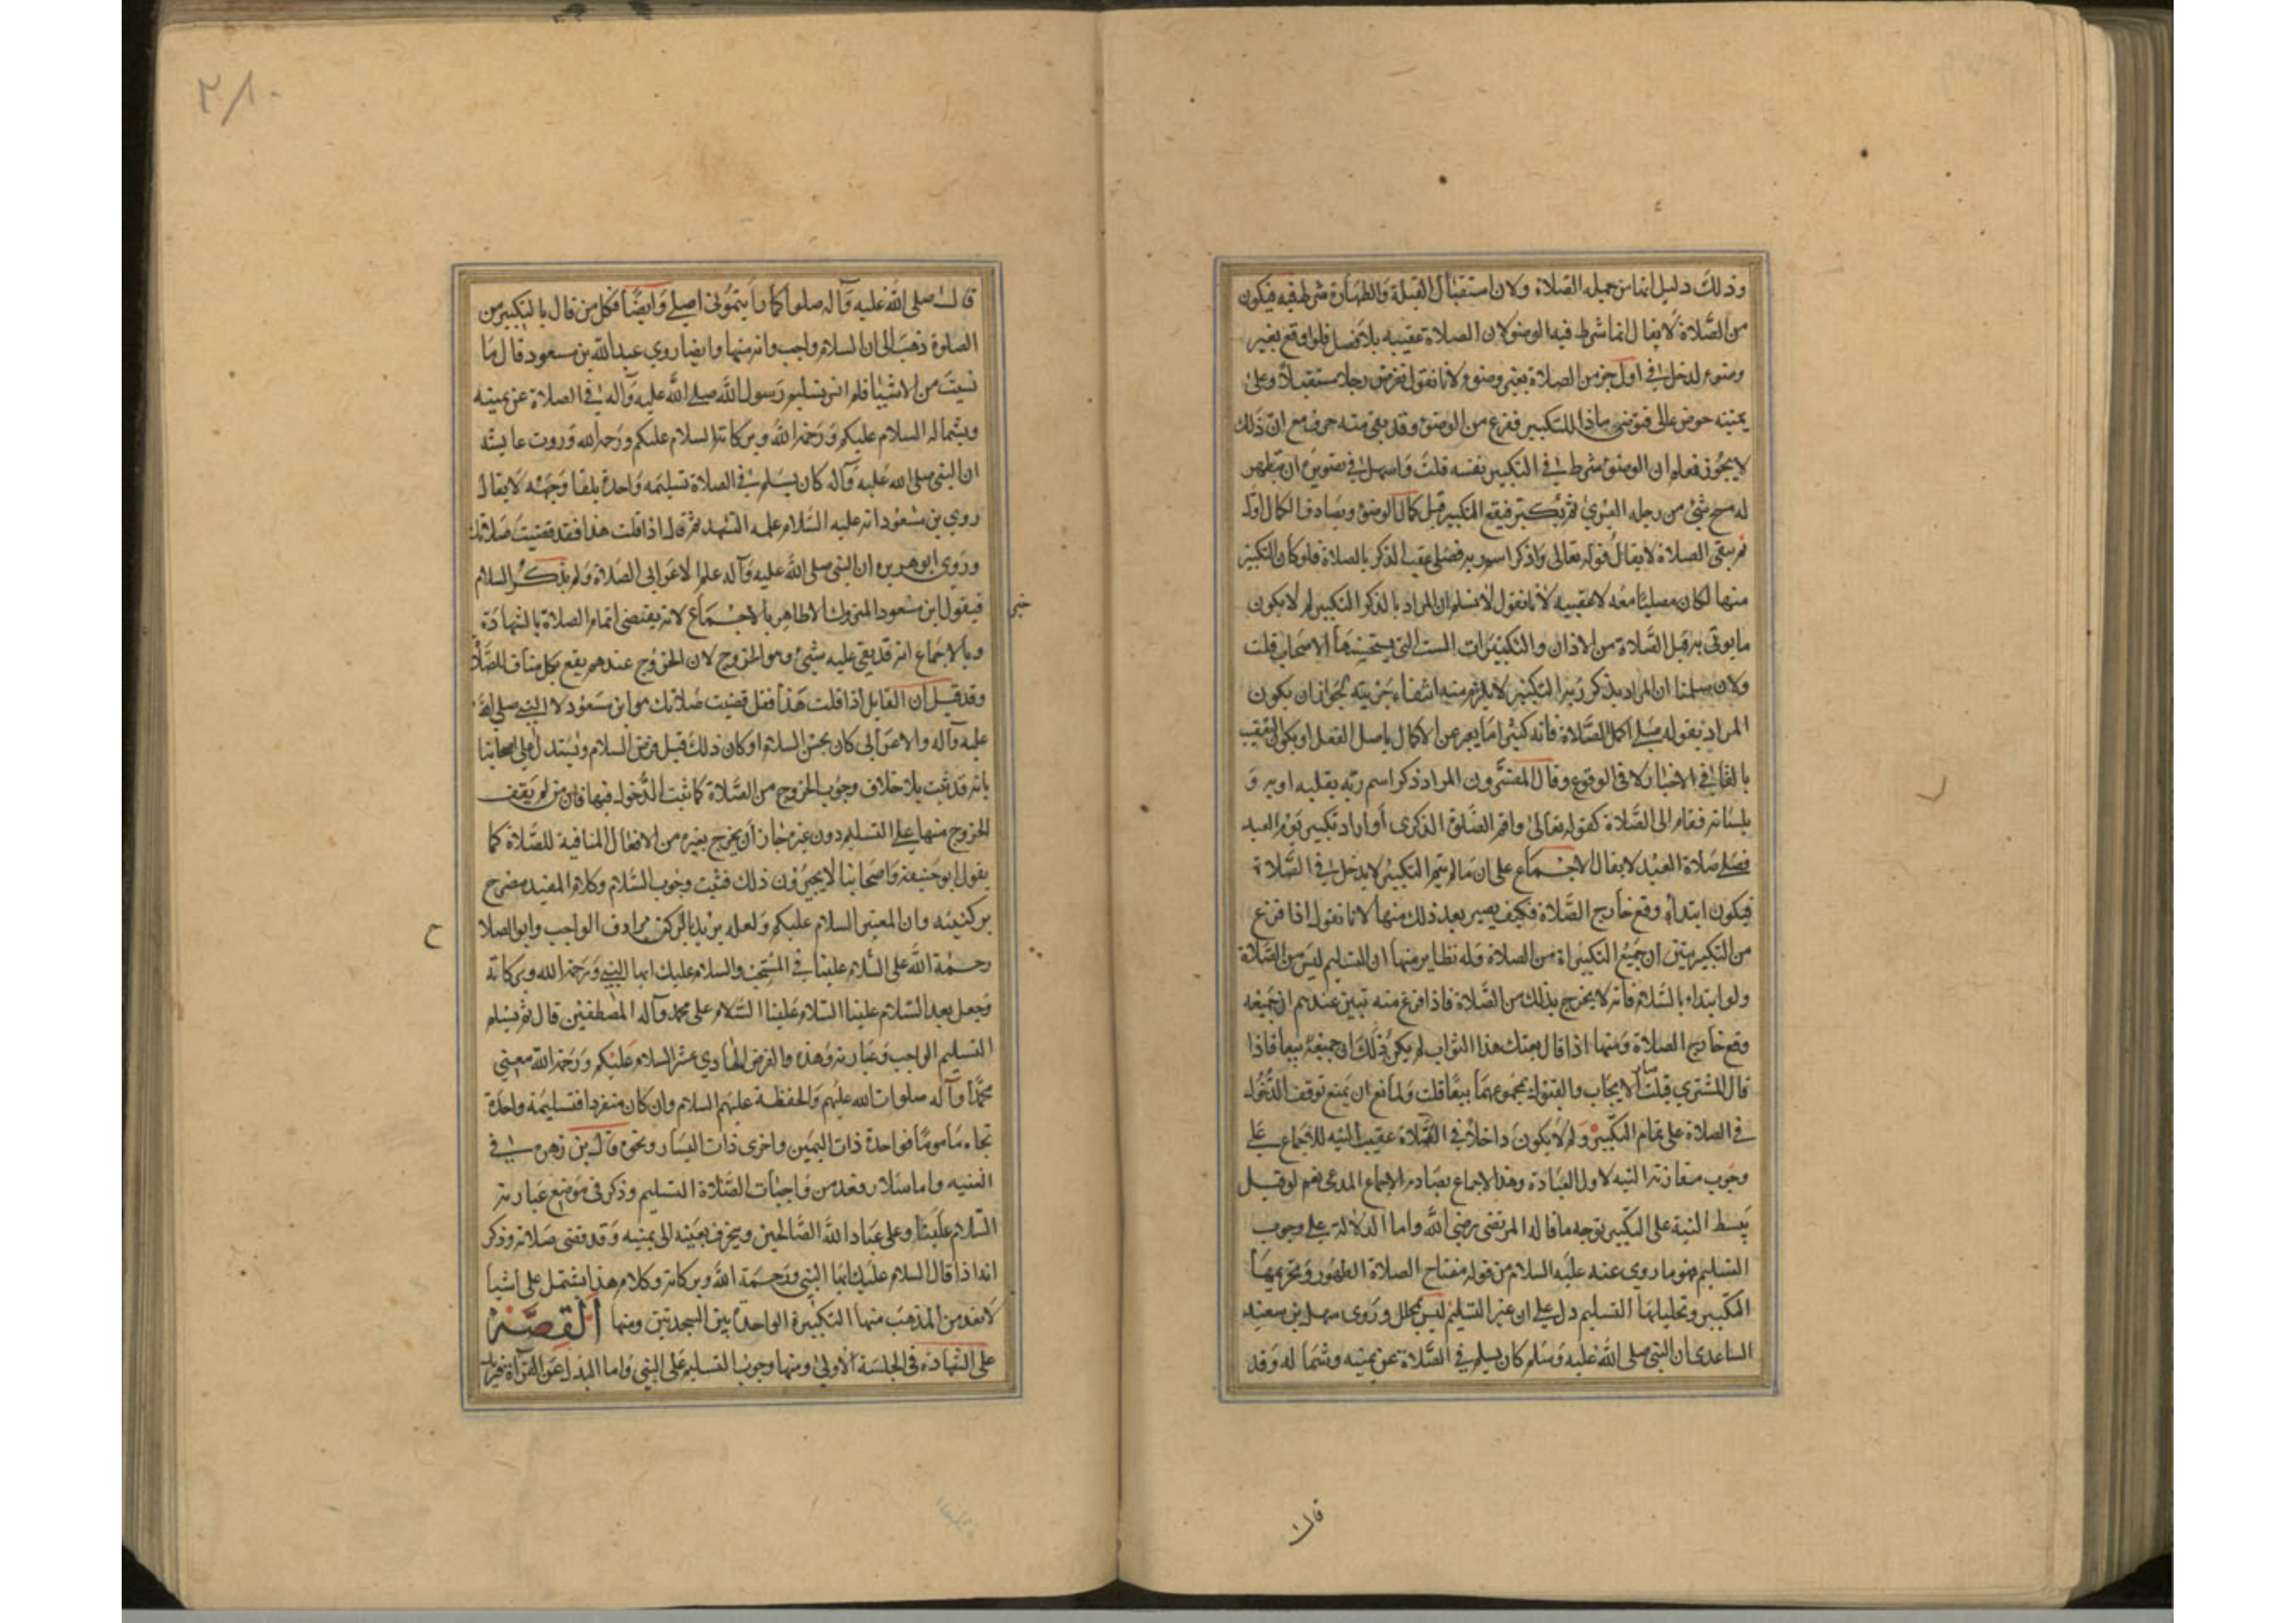 وذلك دليل انها من جملة الصلاة ولان استقبال القبلة والطهارة شرط فيه فيكون
من الصلاة لا يقال انما شرط فيها الوضو لان الصلاة عقيبه بلا فصل فلو اوقع بغير
وضوء لدخل في اول جزء من الصلاة بغير وضوء لانا نقول نفرض رجلا مستقبلا وعلى
يمينه حوض عالى فتوضى مادا للتكبير ففرغ من الوضوء وقد بقى منه حرف مع ان ذلك
لا يجوز فعلم ان الوضوء شرط في التكبير نفسه قلت واسهل في تصويره ان متطهر
له مسح شئ من رجله اليسرى ثم يكبر فيقع التكبير قبل كمال الوضوء ويصادف الكمال اول
ثم يبقى الصلاة لا يقال قوله تعالى واذكر اسم ربه فصلى عقب الذكر بالصلاة فلو كان التكبير
منها لكان مصليا معه لا عقيبه لانا نقول لا نسلم ان المراد بالذكر التكبير لم لا يكون
ما يوتى به قبل الصلاة من الاذان والتكبيرات الست التى يستحبها الاصحاب قلت
ولان سلمنا ان المراد بذكر ربه التكبير لا يلزم منه انتفاء جزئيته لجواز ان يكون
المراد بقوله فصلى اكمل الصلاة فانه كثيرا ما يعبر عن الاكمال باصل الفعل او يكون التعقيب
بالفاء في الاخبار لا في الوقوع وقال المفسرون المراد ذكر اسم ربه بقلبه او به و
بلسانه فقام الى الصلاة كقوله تعالى واقم الصلوة لذكرى او اراد تكبير يوم العيد
فصلى صلاة العيد لا يقال الاجماع على ان ما لم يتم التكبير لا يدخل في الصلاة
فيكون ابتداؤه وقع خارج الصلاة فكيف يصير بعد ذلك منها لانا نقول اذا فرغ
من التكبير تبين ان جميع التكبيراة من الصلاة وله نظاير منها ان التسليم ليس من الصلاة
ولو ابتداء بالسلام فانه لا يخرج بذلك من الصلاة فاذا فرغ منه تبين عندهم ان جميعه
وقع خارج الصلاة ومنها اذا قال بعتك هذا الثواب لم يكن ذلك ان جميعه بيعا فاذا
قال المشترى قبلت صار الايجاب والقبول بمجموعهما بيعا قلت ولمانع ان يمنع توقف الدخول
في الصلاة على تمام التكبير ولم لا يكون داخلا في الصلاة عقيب النية للاجماع على
وجوب مقارنة النية لاول العبادة وهذا الاجماع يصادم الاجماع المدعى نعم لو قيل
يبسط النية على التكبير توجه ما قاله المرتضى رضى الله واما الدلالة على وجوب
التسليم فهو ما روى عنه عليه السلام من قوله مفتاح الصلاة الطهور وتحريمها
التكبير وتحليلها التسليم دل على ان غير التسليم ليس بمحلل وروى سهل بن سعيد
الساعدى ان النبى صلى الله عليه وسلم كان يسلم في الصلاة عن يمينه وشماله وقد
قال
٢٨٠
قال صلى الله عليه وآله صلوا كما رأيتمونى اصلى وايضا فكل من قال بالتكبير من
الصلوة ذهب الى ان السلام واجب وانه منها وايضا روى عبدالله بن مسعود قال ما
نسيت من الاشيا فلم انس تسليم رسول الله صلى الله عليه وآله في الصلاة عن يمينه
وبشماله السلام عليكم ورحمة الله وبركاته السلام عليكم ورحمة الله وروت عايشه
ان النبى صلى الله عليه وآله كان يسلم في الصلاة تسليمه واحدة تلقا وجهه لا يقال
روى بن مسعود انه عليه السلام علمه التشهد ثم قال اذا قلت هذا فقد قضيت صلاتك
وروى ابو هريره ان النبى صلى الله عليه وآله علم الاعرابى الصلاة ولم يذكر السلام
فيقول ابن مسعود المتروك الظاهر بالاجماع لانه يقتضى اتمام الصلاة بالشهادة
خبر
وبالاجماع انه قد بقى عليه شئ وهو الخروج لان الخروج عندهم يقع بكل مناف للصلاة
وقد قيل ان القايل اذا قلت هذا فقد قضيت صلاتك هو ابن مسعود لا النبى صلى الله
عليه وآله والاعرابى كان يحسن السلام او كان ذلك قبل فرض السلام ويستدل على اصحابنا
بانه قد ثبت بلا خلاف وجوب الخروج من الصلاة كما ثبت الدخول فيها فان من لم يقف
الخروج منها على التسليم دون غيره جاز ان يخرج بغيره من الافعال المنافية للصلاة كما
يقول ابو حنيفة واصحابنا لا يجيزون ذلك فثبت وجوب السلام وكلام المفيد مصرح
بركنيته وان المعتبر السلام عليكم ولعله يريد بالركن مرادف الواجب وابو الصلا
ح
رحمة الله على السلام علينا في المستحب والسلام عليك ايها النبى ورحمة الله وبركاته
وجعل بعد السلام علينا السلام علينا السلام على محمد وآله المصطفين قال ثم يسلم
التسليم الواجب وعبارته وهذه والفرض الحادى عشر السلام عليكم ورحمة الله معنى
محمدا وآله صلوات الله عليهم والحفظة عليهم السلام وان كان منفردا فتسليمة واحدة
تجاه مأموما فواحدة ذات اليمين واخرى ذات اليسار ونحوه قال بن زهره في
الغنيه واما سلار فعد من واجبات الصلاة التسليم وذكر في موضع عبارته
السلام علينا وعلى عباد الله الصالحين ويحرف بعينه الى يمينه وقد قضى صلاته وذكر
انه اذا قال السلام عليك ايها النبى ورحمة الله وبركاته وكلام هذا يشتمل على اشيا
لا تعد من المذهب منها التكبيرة الواحدة بين السجدتين ومنها القصر
على الشهادة في الجلسة الاولى ومنها وجوب التسليم على النبى واما البدل عن القراة